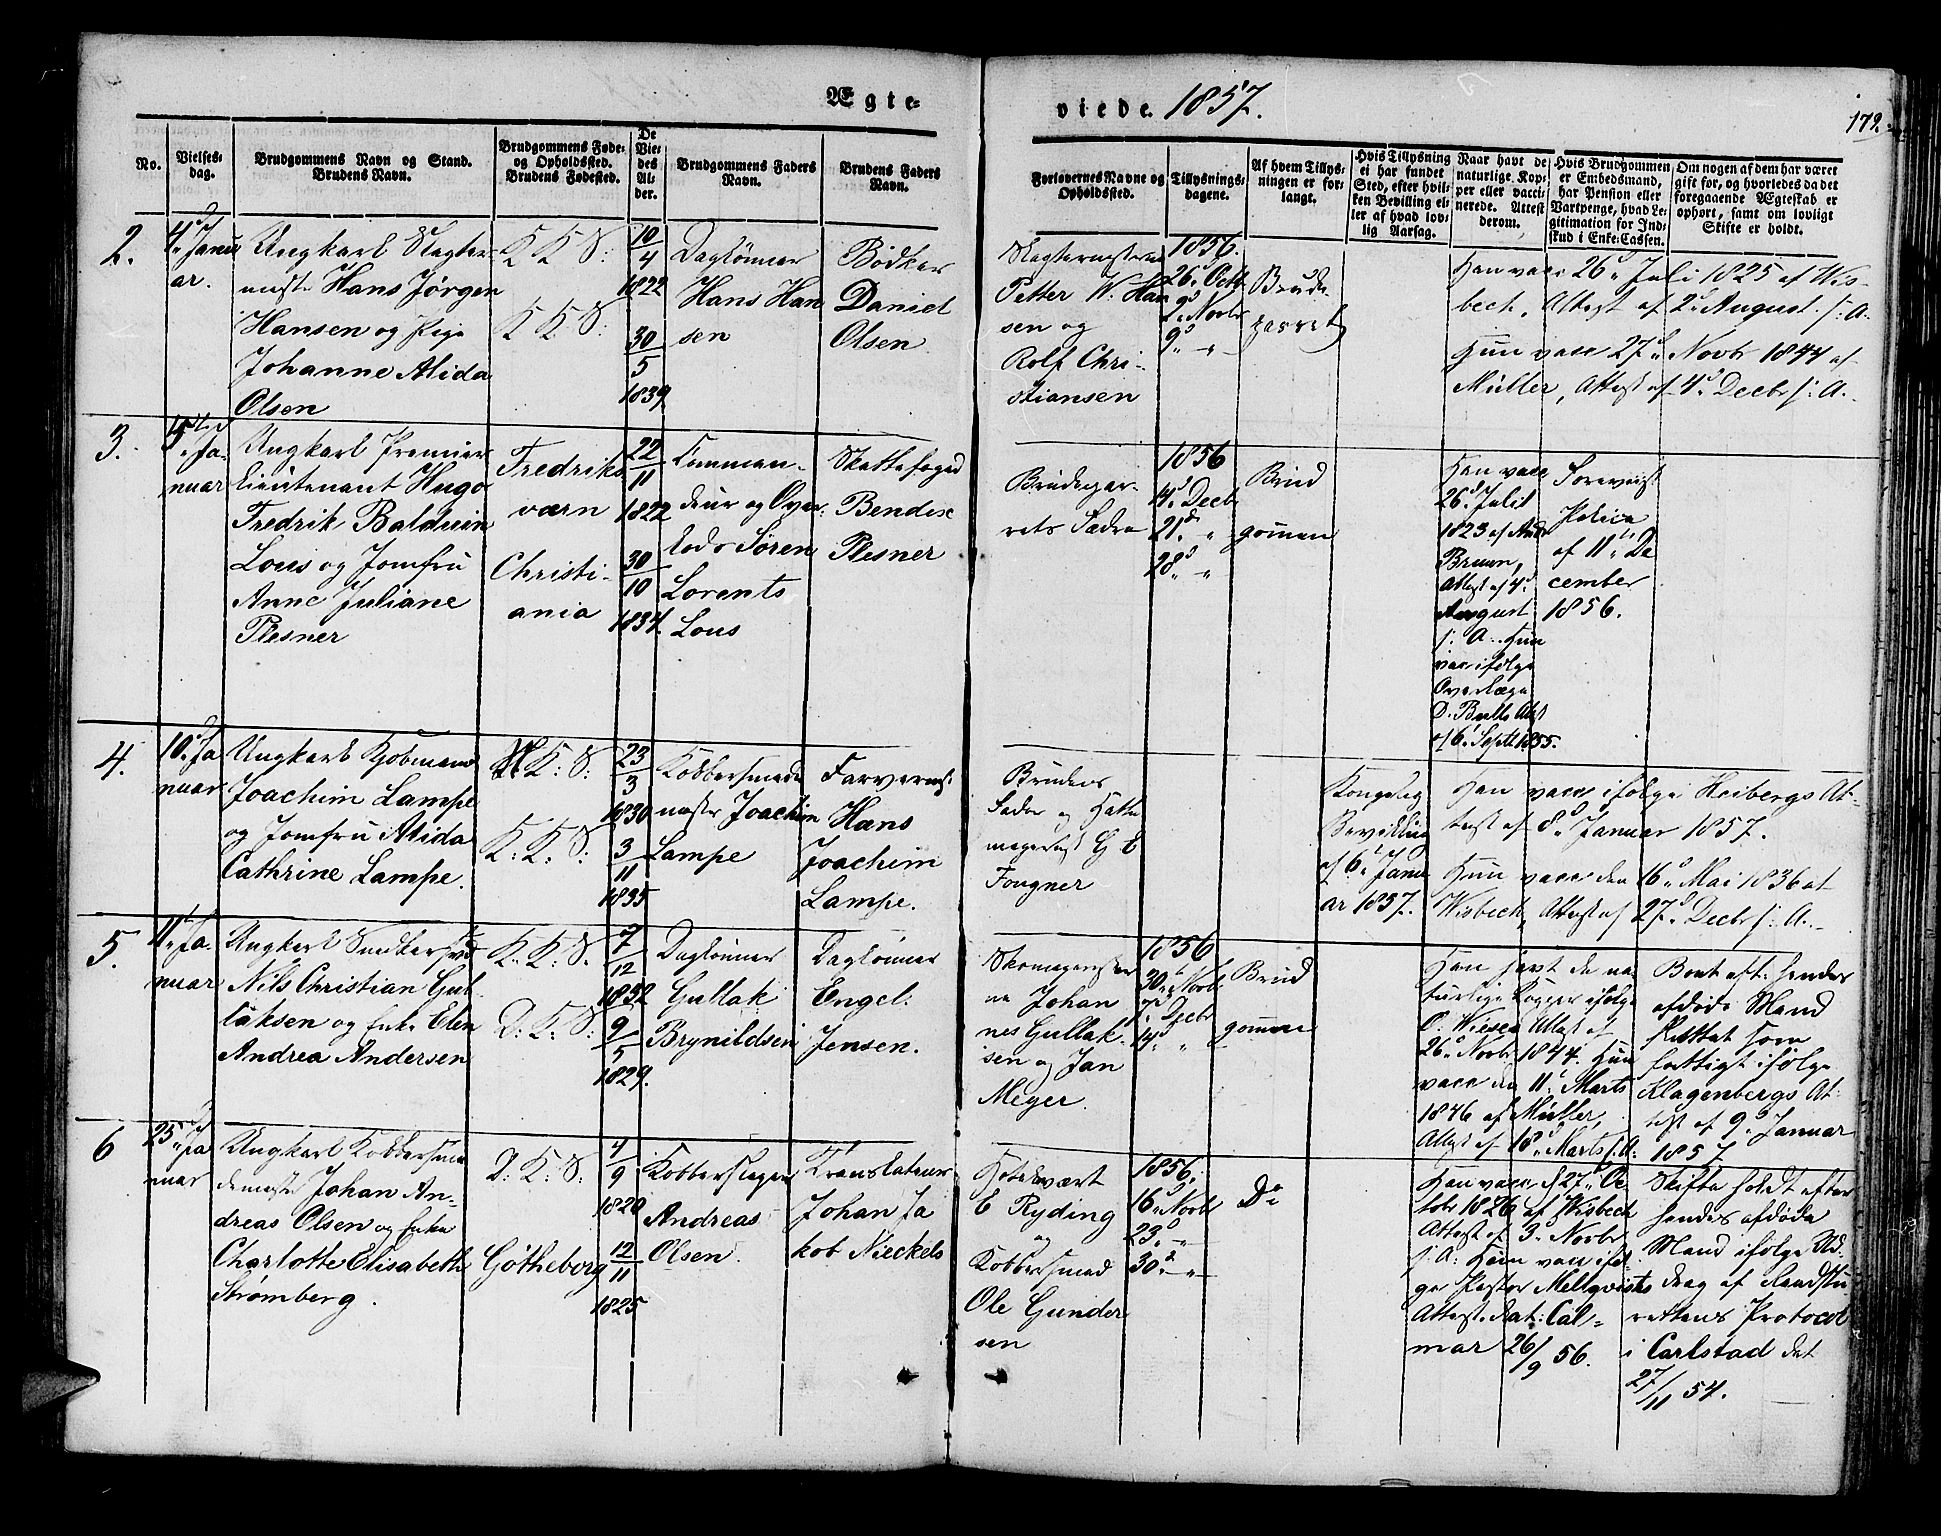 Ægte-
viede. 1857.
179.
No.
Vielses-
dag.
Brudgommens Navn og Stand.
Brudens Navn.
Brudgommens Føde-
og Opholdssted.
Brudens Fødested.
De
Vie-
des
Al-
der.
Brudgommens Faders
Navn.
Brudens Faders
Navn.
Forlovernes Navne og
Opholdssted.
Tillysnings-
dagene.
Af hvem Tillys-
ningen er for-
langt.
Hvis Tillysning
ei har fundet
Sted, efter hvil-
ken Bevilling el-
ler af hvad lov-
lig Aarsag.
Naar havt de
naturlige Kop-
per eller vacci-
nerede. Attest
derom.
Hvis Brudgommen
er Embedsmand,
har Pension eller
Vartpenge, hvad Le-
gitimation for Ind-
skud i Enke-Cassen.
Om nogen af dem har været
gift før, og hvorledes da det
foregaaende Ægteskab er
ophørt, samt om lovligt
Skifte er holdt.
2.
4d Janu
ar.
Ungkarl Slagter-
mestr Hans Jørgen
Hansen og Pige
Johanne Alida
Olsen
K K S:
K K S:
10
4
1822
30
5
1839
Daglønner
Hans Han
sen
Bødker
Daniel
Olsen
Slagtermestrene
Petter W. Han
sen og
Rolf Chri-
stiansen
1856.
26d Octb
2d Novbr
9d "
Brude
parret
Han vacc 26d Juli 1825 af Wis-
bech, Attest af 2d August s: A.
Hun vacc 27d Novbr 1844 af
Müller, Attest af 4d Decbr s: A.
3.
5te Ja-
nuar
Ungkarl Premier
lieutenant Hugo
Fredrik Balduin
Lous og Jomfru
Anne Juliane
Plesner
Fredriks
værn
Christi-
ania
22
11
1822
30
10
1834.
Comman-
deur og Over
lods Søren
Lorents
Lous
Skattefoged
Bendix
Plesner
Brudepar-
rets Fædre
1856
14d Decb
21d "
28d "
Brud
gommen
Han vacc
26d Juli
1823 af And
Bruun,
Attest af 4d
August
s: A. Hun
vacc ifølge
Overlæge
D. Bulls Atst
af 6t Septb 1855.
Foreviist
Police
af 11te De
cember
1856.
4.
10d Ja
nuar
Ungkarl Kjøbmand
Joachim Lampe
og Jomfru Alida
Cathrine Lampe.
K: S:
K: K: S:
23
3
1830
3
11
1835
Kobbersmede
mester Joachim
Lampe
Farvermst
Hans
Joachim
Lampe.
Brudens
Fader og Hatte
magermst G E
Fougner
Kongelig
Bevilling
af 6t Janu
ar 1857.
Han vacc ifølge Heibergs At-
test af 8d Januar 1857.
Hun vacc den 16d Mai 1836 af
Wisbech, Attest af 27d Decbr s: A.
5.
11t Ja-
nuar
Ungkarl Snedkersvd
Nils Christian Gul
laksen og Enke Elen
Andrea Andersen
K. K: S.
D: K: S:
7
12
1832
9
5
1829.
Daglønner
Gullak
Brynildsen
Daglønner
Engel:
Jensen.
Skomagermster
ne Johan
nes Gullak-
sen og Jan
Meyer.
1856
30t Novbr
7d Decbr
14d "
Brud
gommen
Han havt de na
turlige Kopper ifølge
O. Wiesea Attest af
26d Novbr 1844. Hun
vacc den 11t Marts
1846 af Müller,
Attest af 18d Marts s: A:
Boet eft: hendes
afdøde Mand
befattigt ifølge
Klagenbergs At:
test af 9d Januar
1857
6
25d Ja
nuar
Ungkarl Kobbersme
demestr Johan An-
dreas Olsen og Enke
Charlotte Elisabeth
Strømberg.
D: K: S:
Götheborg
4
9
1820
12
11
1825
Kobberslager
Andreas
Olsen.
Translateur
Johan Ja
kob Nieckels
Hotelvært
E Ryding
og
Kobbersmed
Ole Gunder
sen
1856.
16d Novbr
23d "
30d "
Do
Han vacc d 27d Oc
tobr 1826 af Wisbech
Attest af 3d Novbr
s: A: Hun vacc iføl
ge Pastor Mellqvists
Attest dat: Cal-
mar 26/9 56.
Skifte holdt efter
hendes afdøde
Mand ifølge Ud-
drag af Raadstu
rettens Protocol
i Carlstad det
27/11 54.